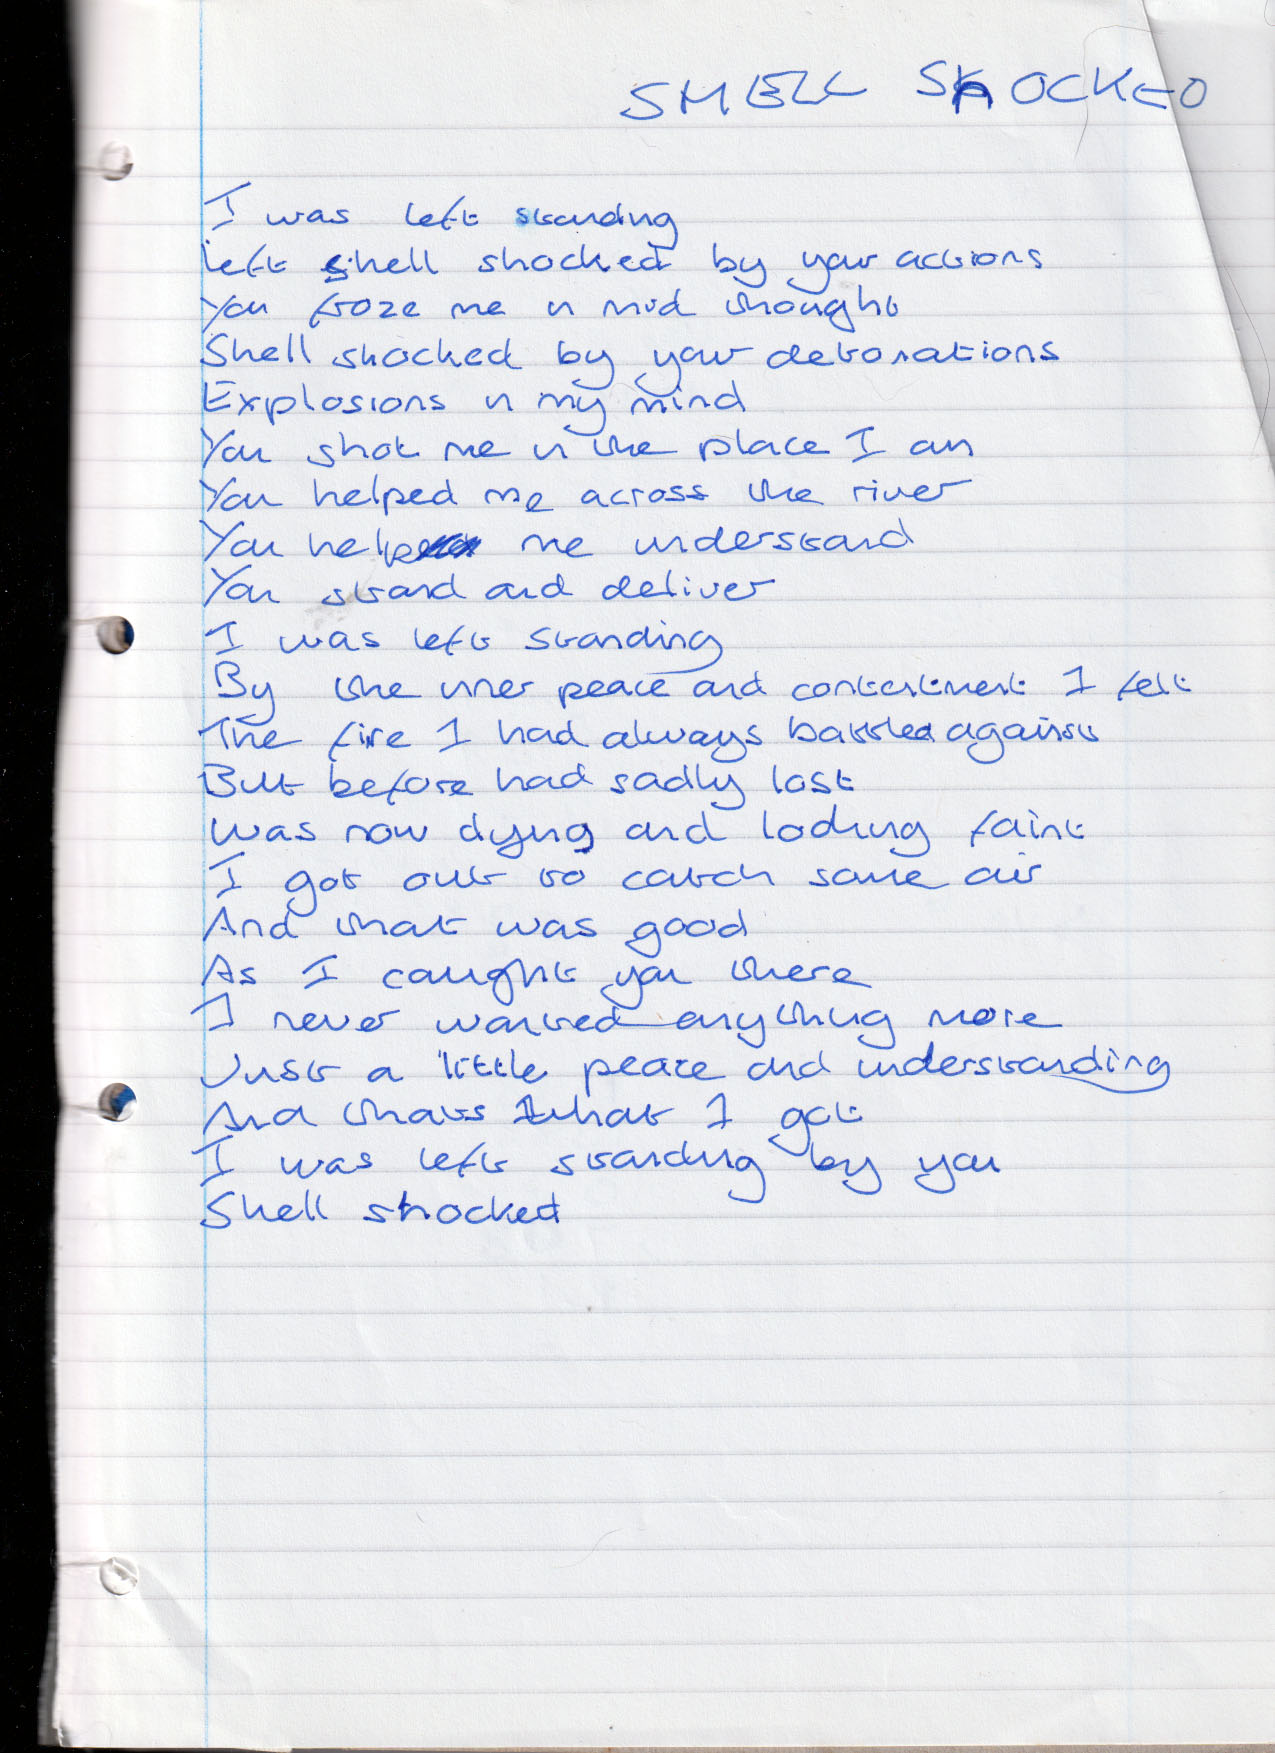 SHELL SHOCKED
I was left standing
left shell shocked by your actions
You froze me in mid thought
Shell shocked by your detonations
Explosions in my mind
You shot me in the place I am
You helped me across the river
You help me understand
You stand and deliver
I was left standing
By the inner peace and contentment I felt
The fire I had always battled against
But before had sadly lost
Was now dying and looking faint
I got out to catch some air
And that was good
As I caught you there
I never wanted anything more
Just a little peace and understanding
And thats what I got
I was left standing by you
Shell shocked